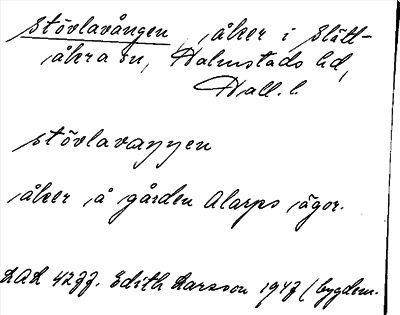 Stövlavången, åker i Slätt-
åkra sn, Halmstads hd,
Hall. l.
stövlavaŋŋen
åker å gården Alarps ägor.
DAL 4277. Edith Larsson 1947 (bygdem.